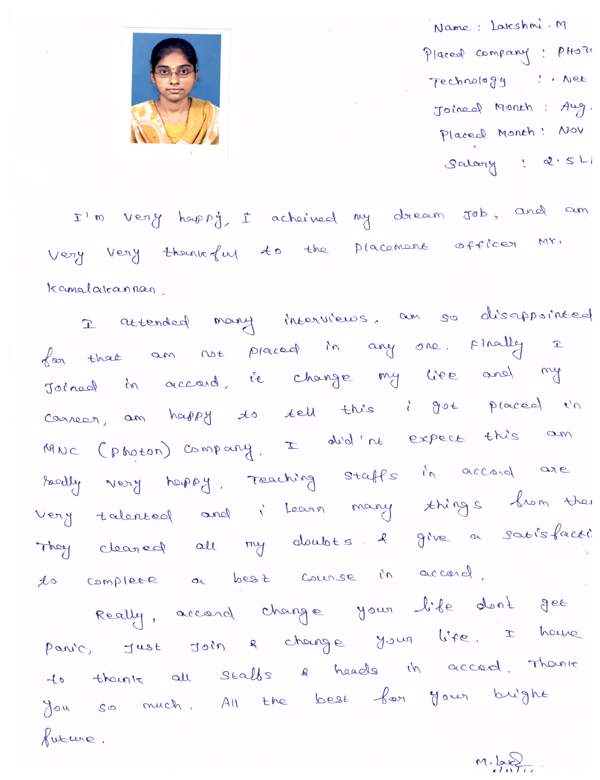 Name : Lakshmi . M
Placed Company : PHOTO
Technology : . Net
Joined Month : Aug.
Placed Month : Nov
Salary : 2.5 L
I'm very happy, I acheived my dream Job, and am
very very thankful to the placement officer Mr.
Kamalakannan.
I attended many interviews, am so disappointed
for that am not placed in any one. Finally I
Joined in accord, it change my life and my
carreer, am happy to tell this i got placed in
MNC (photon) company. I did'nt expect this am
really very happy. Teaching staffs in accord are
very talented and i learn many things from them
They cleared all my doubts & give a satisfacti
to complete a best course in accord.
Really, accord change your life don't get
panic, Just Join & change your life. I have
to thank all staffs & heads in accord. Thank
you so much. All the best for your bright
future.
M.